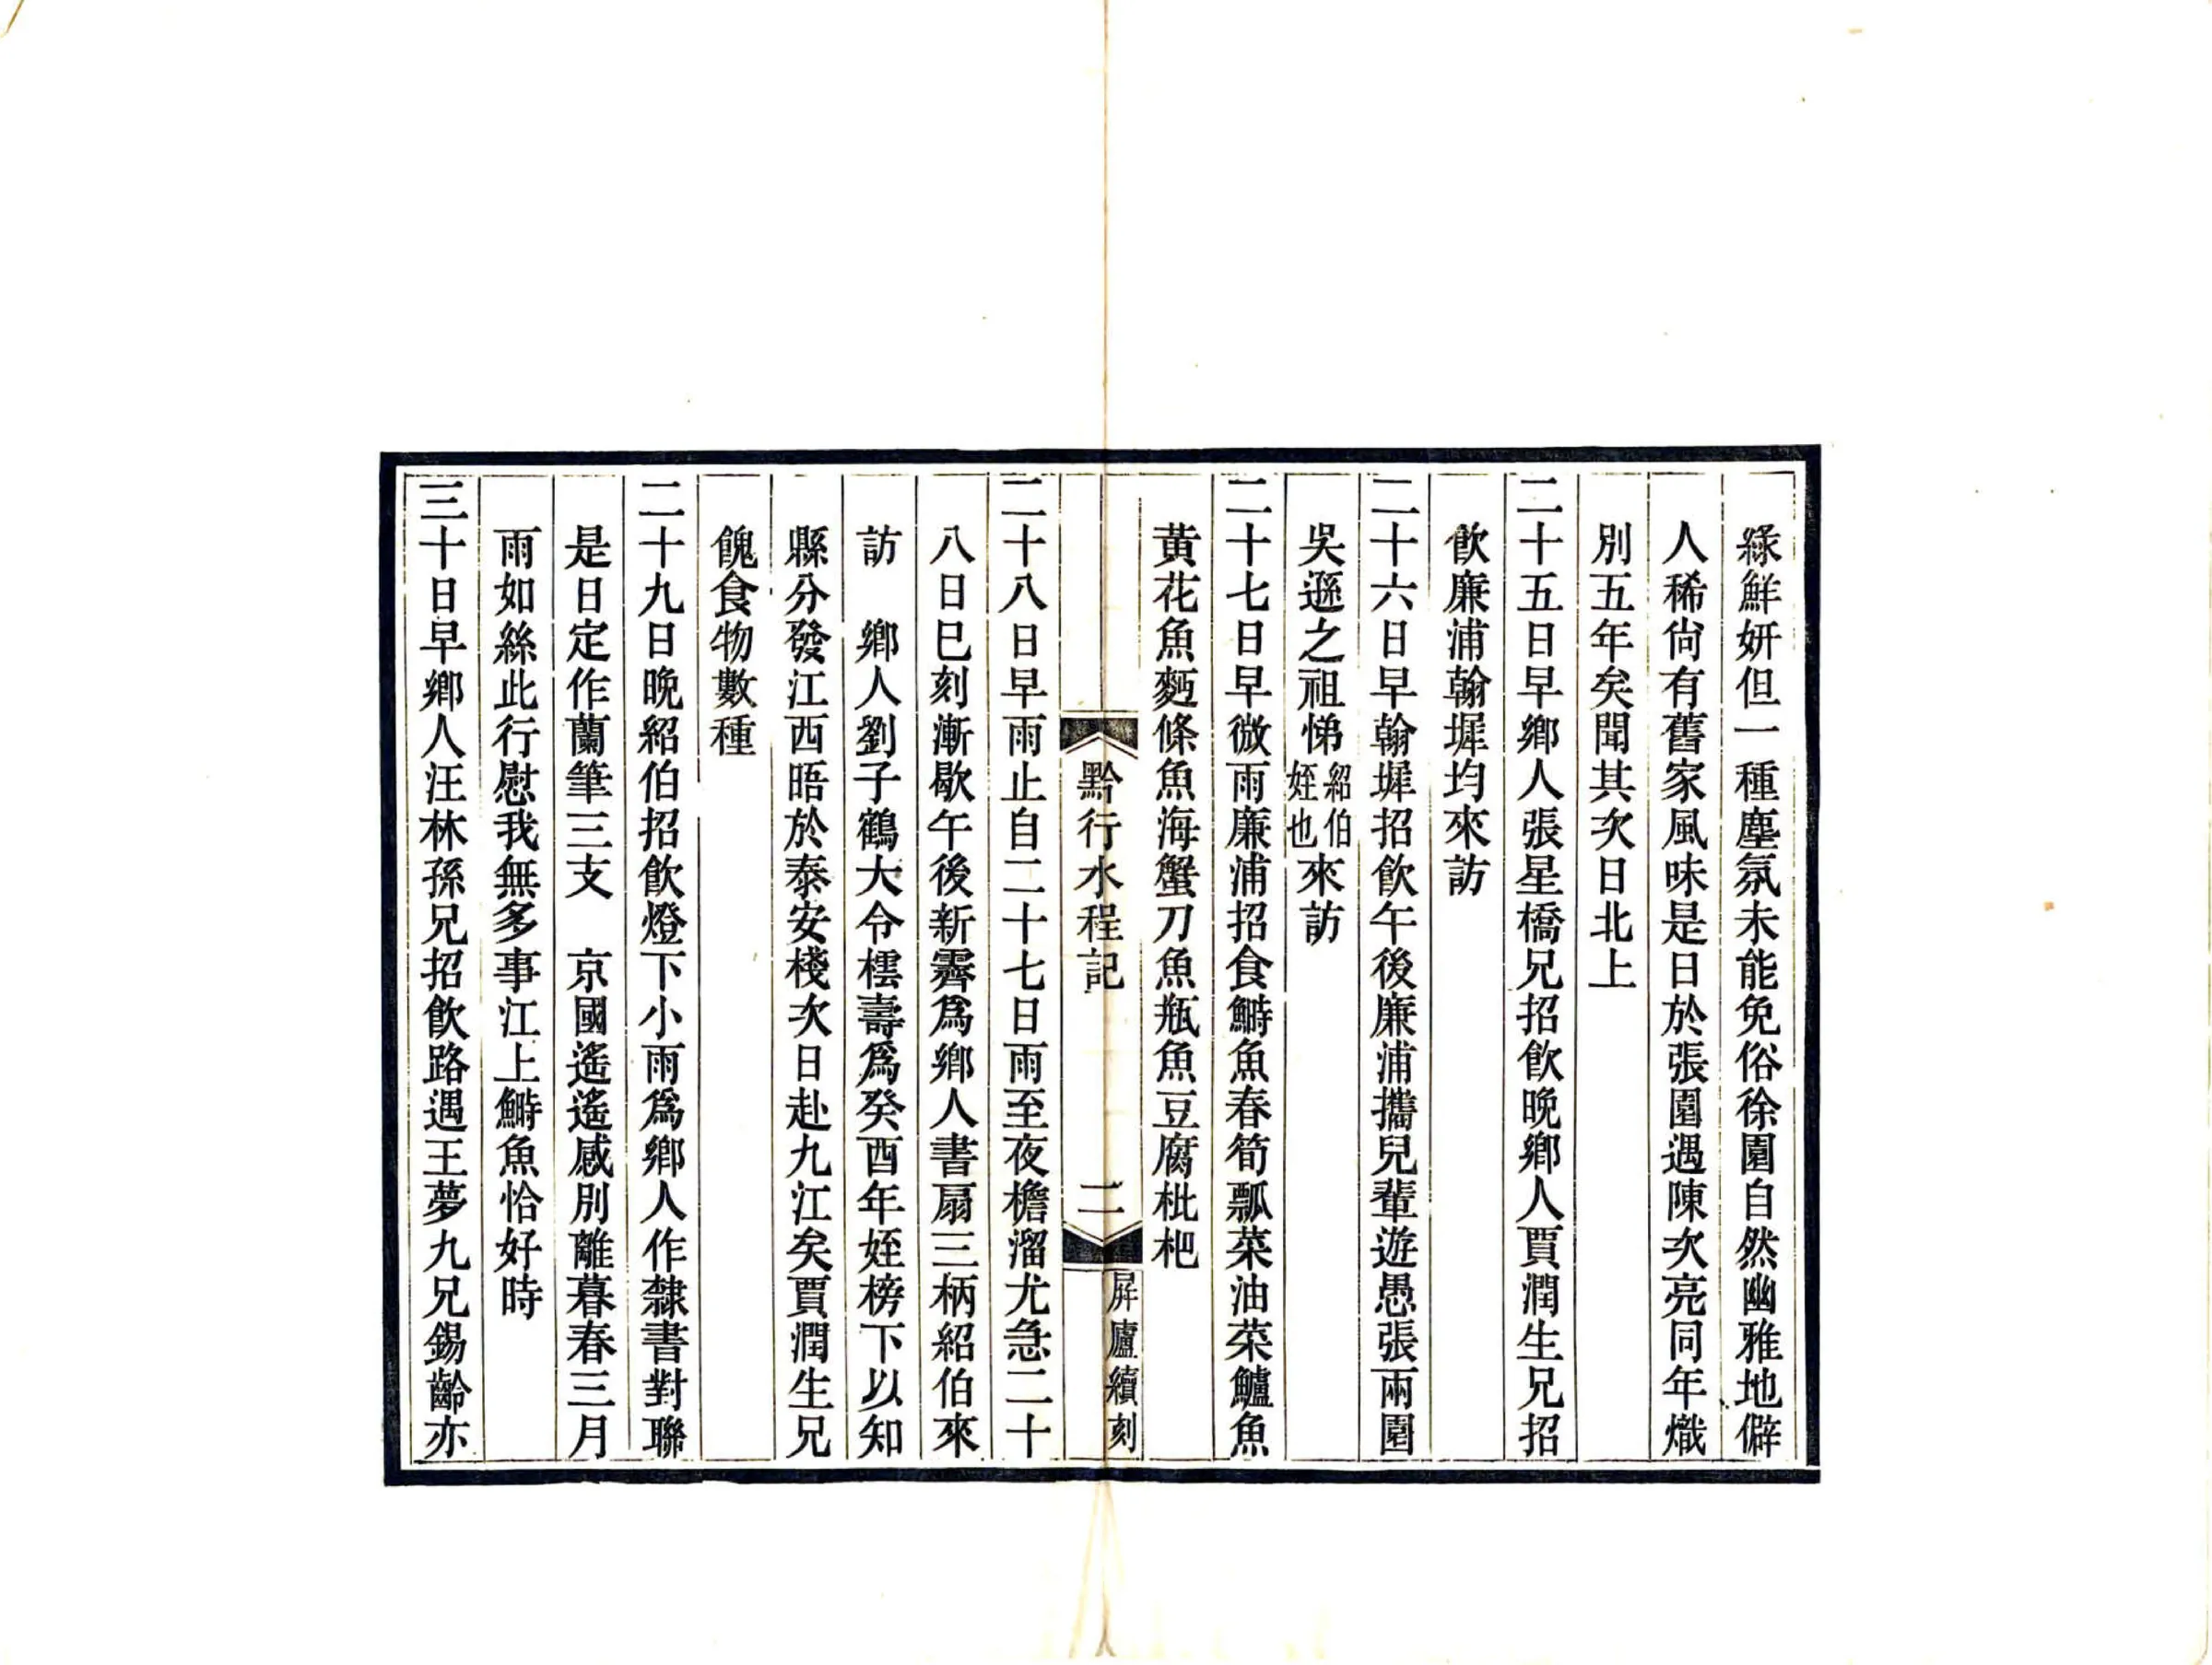 綠鮮妍但一種塵氛未能免俗徐園自然幽雅地僻
人稀尙有舊家風味是日於張園遇陳次亮同年熾
別五年矣聞其次日北上
二十五日早鄉人張星橋兄招飮晚鄉人賈潤生兄招
飮廉浦翰墀均來訪
二十六日早翰墀招飮午後廉浦攜兒輩遊愚張兩園
吳遜之祖悌紹伯姪也來訪
二十七日早微雨廉浦招食鰣魚春筍瓢菜油菜鱸魚
黃花魚麪條魚海蟹刀魚瓶魚豆腐枇杷
黔行水程記
二
屛廬續刻
二十八日早雨止自二十七日雨至夜檐溜尤急二十
八日巳刻漸歇午後新霽爲鄉人書扇三柄紹伯來
訪　鄉人劉子鶴大令櫺壽爲癸酉年姪榜下以知
縣分發江西晤於泰安棧次日赴九江矣賈潤生兄
餽食物數種
二十九日晚紹伯招飮燈下小雨爲鄉人作隸書對聯
是日定作蘭筆三支　京國遙遙感別離暮春三月
雨如絲此行慰我無多事江上鰣魚恰好時
三十日早鄉人汪林孫兄招飮路遇王夢九兄錫齡亦